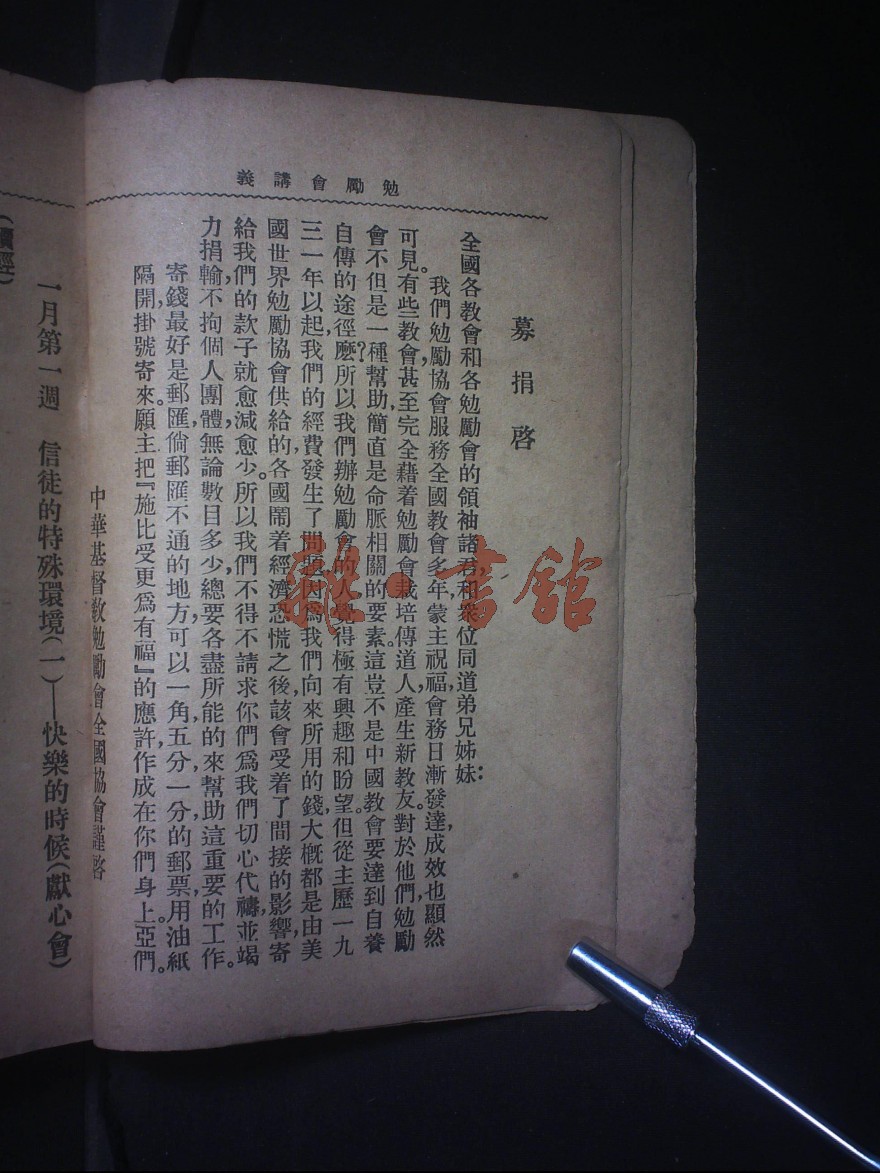 勉勵會講義
募捐啓
全國各教會和各勉勵會的領袖諸君,和眾位同道弟兄姊妹:
我們勉勵協會服務全國教會多年,蒙主祝福,會務日漸發達,成效也顯然
可見。有些教會,甚至完全藉着勉勵會栽培傳道人,產生新教友。對於他們,勉勵
會不但是一種幫助,簡直是命脈相關的要素。這豈不是中國教會要達到自養
自傳的途徑麽?所以我們辦勉勵會的人,覺得極有興趣和盼望。但從主歷一九
三一年以起,我們的經費發生了問題,因爲我們向來所用的錢,大概都是由美
國世界勉勵協會供給的,各國鬧着經濟恐慌之後,該會受着了間接的影響,寄
給我們的款子就愈減愈少。所以我們不得不請求你們爲我們切心代禱,並竭
力捐輸,不拘個人團體,無論數目多少,總要各盡所能的來幫助這重要的工作。
寄錢最好是郵匯,倘郵匯不通的地方,可以一角五分一分的郵票,用油紙
隔開,掛號寄來。願主把『施比受更爲有福』的應許,作成在你們身上。亞們。
中華基督教勉勵會全國協會謹啓
一月第一週 信徒的特殊環境(一)——快樂的時候(獻心會)
(讀經)
龍·書館